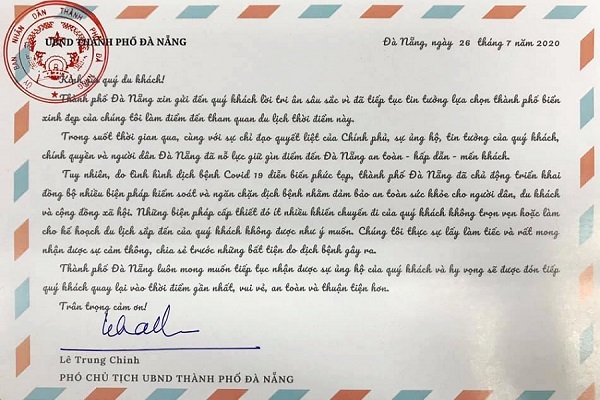 UBND THÀNH PHỐ ĐÀ NẴNG
Đà Nẵng, ngày 26 tháng 7 năm 2020
Kính gửi quý du khách!
Thành phố Đà Nẵng xin gửi đến quý khách lời tri ân sâu sắc vì đã tiếp tục tin tưởng lựa chọn thành phố biển
xinh đẹp của chúng tôi làm điểm đến tham quan du lịch thời điểm này.
Trong suốt thời gian qua, cùng với sự chỉ đạo quyết liệt của Chính phủ, sự ủng hộ, tin tưởng của quý khách,
chính quyền và người dân Đà Nẵng đã nỗ lực giữ gìn điểm đến Đà Nẵng an toàn - hấp dẫn - mến khách.
Tuy nhiên, do tình hình dịch bệnh Covid 19 diễn biến phức tạp, thành phố Đà Nẵng đã chủ động triển khai
đồng bộ nhiều biện pháp kiểm soát và ngăn chặn dịch bệnh nhằm đảm bảo an toàn sức khỏe cho người dân, du khách
và cộng đồng xã hội. Những biện pháp cấp thiết đó ít nhiều khiến chuyến đi của quý khách không trọn vẹn hoặc làm
cho kế hoạch du lịch sắp đến của quý khách không được như ý muốn. Chúng tôi thực sự lấy làm tiếc và rất mong
nhận được sự cảm thông, chia sẻ trước những bất tiện do dịch bệnh gây ra.
Thành phố Đà Nẵng luôn mong muốn tiếp tục nhận được sự ủng hộ của quý khách và hy vọng sẽ được đón tiếp
quý khách quay lại vào thời điểm gần nhất, vui vẻ, an toàn và thuận tiện hơn.
Trân trọng cảm ơn!
Lê Trung Chinh
PHÓ CHỦ TỊCH UBND THÀNH PHỐ ĐÀ NẴNG
ỦY BAN NHÂN DÂN THÀNH PHỐ ĐÀ NẴNG